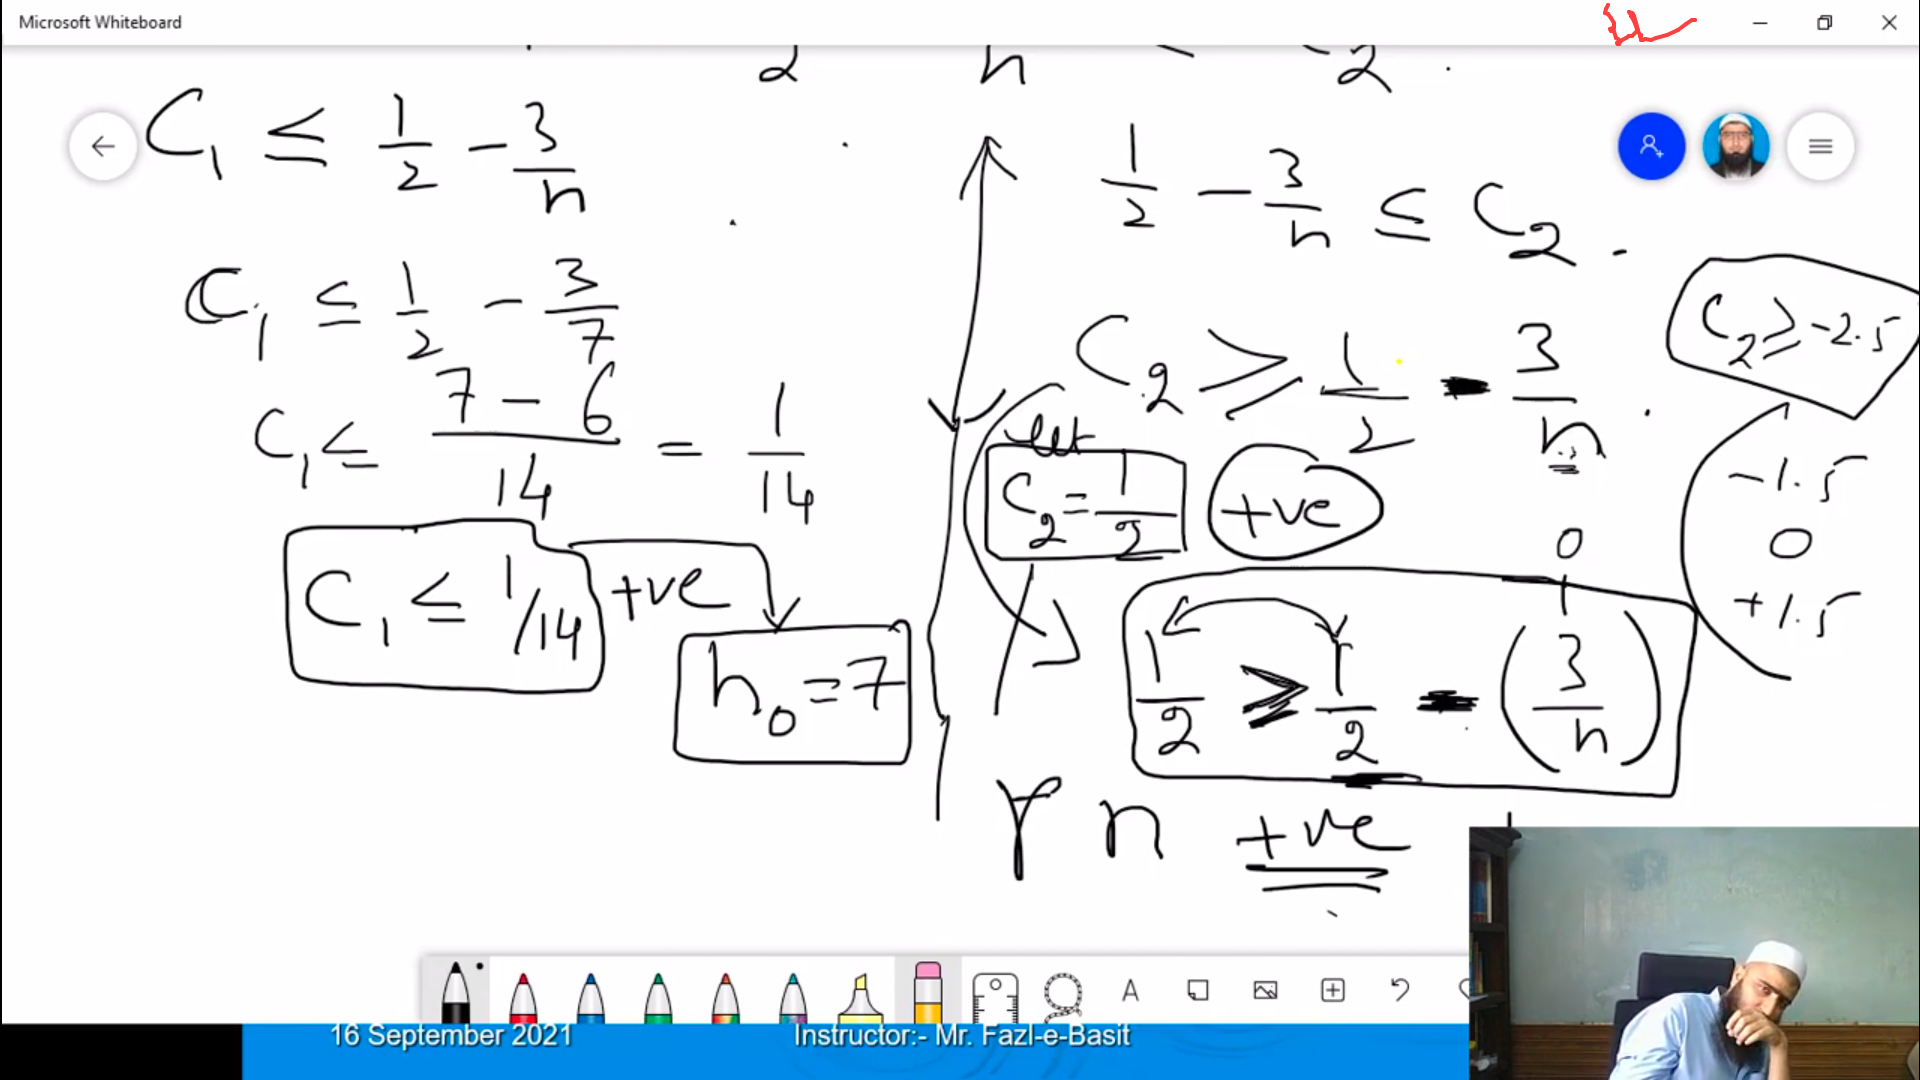 Microsoft Whiteboard
C₁ ≤ 1/2 - 3/n
C₁ ≤ 1/2 - 3/7
C₁ ≤ 7 - 6 / 14 = 1/14
C₁ ≤ 1/14 +ve
n₀ = 7
1/2 - 3/n ≤ C₂
C₂ ≥ 1/2 - 3/n
let
C₂ = 1/2 +ve
0
1/2 ≥ 1/2 - (3/n)
n +ve
C₂ ≥ -2.5
-1.5
0
+1.5
16 September 2021
Instructor:- Mr. Fazl-e-Basit